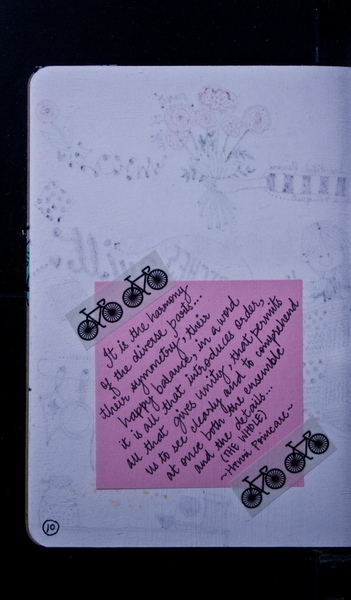 It is the harmony
of the diverse parts...
their symmetry, their
happy balance; in a word
it is all that introduces order,
all that gives unity, that permits
us to see clearly and to comprehend
at once both the ensemble
and the details...
(THE WHOLE)
10